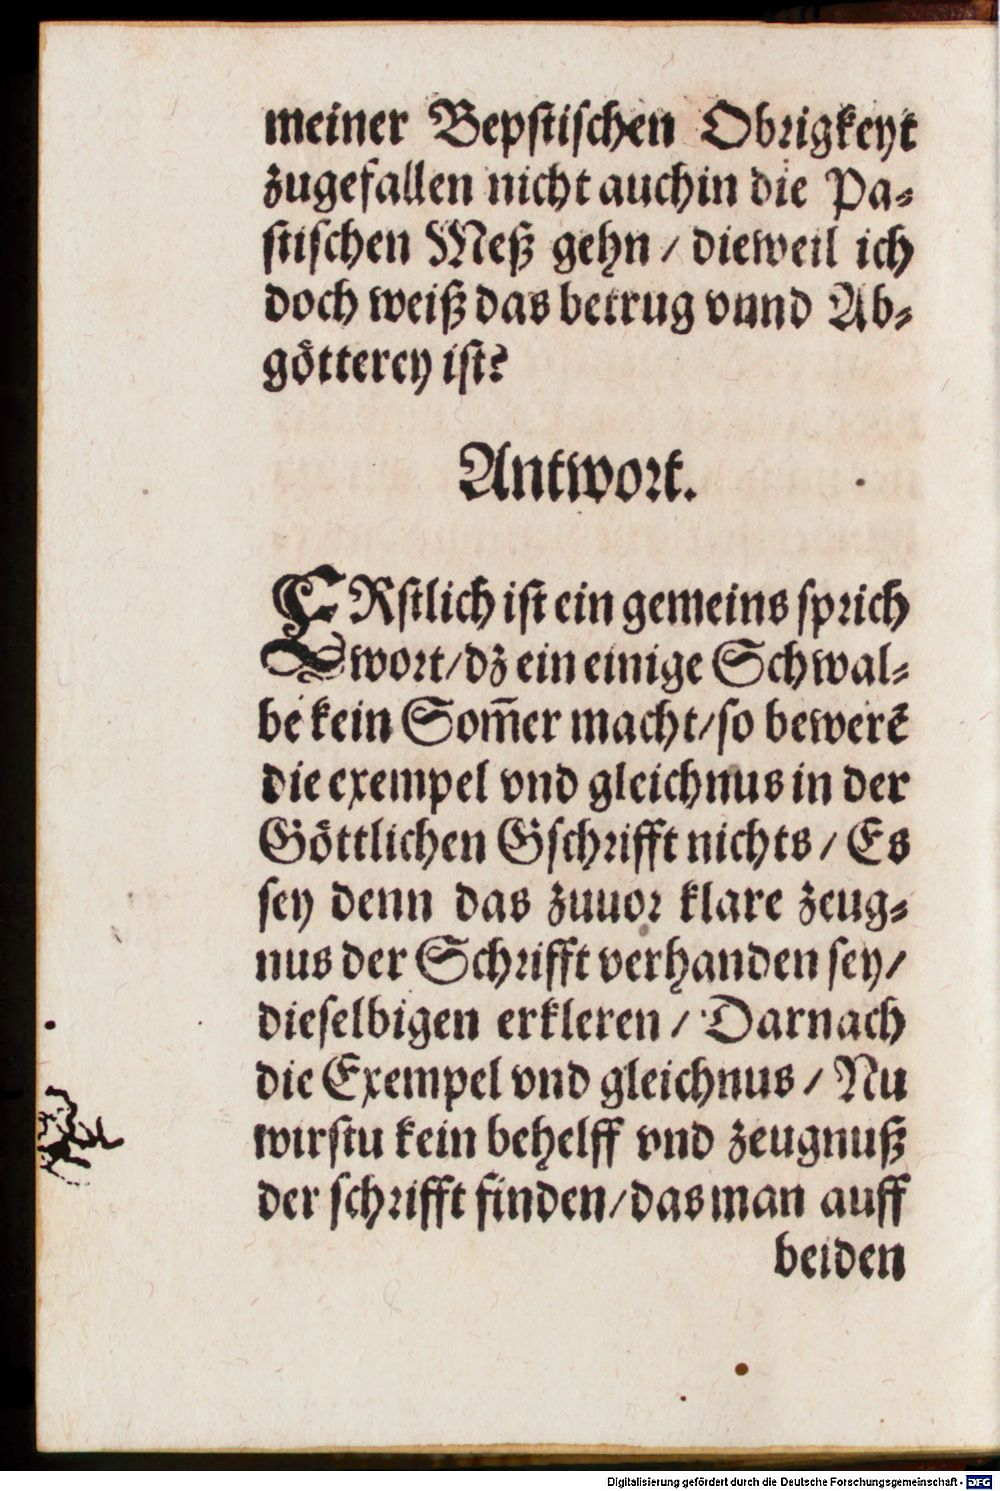 meiner Bepſtiſchen Obrigkeyt
zugefallen nicht auch in die Pa⸗
ſtiſchen Meß gehn / dieweil ich
doch weiß das betrug vnnd Ab⸗
götterey iſt?
Antwort.
ERſtlich iſt ein gemeins ſprich
wort / dz ein einige Schwal⸗
be kein Som̄er macht / ſo bewerẽ
die exempel vnd gleichnus in der
Göttlichen Gſchrifft nichts / Es
ſey denn das zuuor klare zeug⸗
nus der Schrifft verhanden ſey /
dieſelbigen erkleren / Darnach
die Exempel vnd gleichnus / Nu
wirſtu kein behelff vnd zeugnuß
der ſchrifft finden / das man auff
beiden
Digitalisierung gefördert durch die Deutsche Forschungsgemeinschaft - DFG